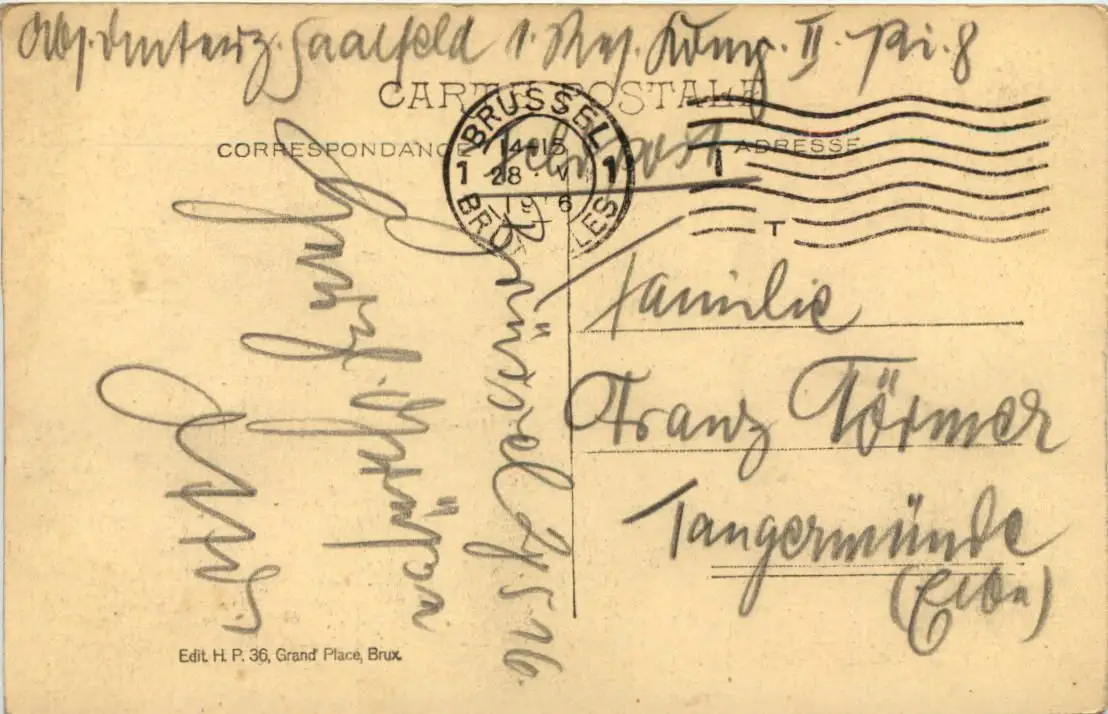 Abs. Unteroffz. Saalfeld 1. Res. Komp. II. Pi. 8
CARTE POSTALE
CORRESPONDANCE
ADRESSE
BRUSSEL
1 14-15 1
28 V
1916
BRUXELLES
T
Feldpost
Familie
Franz Törmer
Tangermünde
(Elbe)
Brüssel 27.5.16.
Herzl. Grüße
Edit. H. P. 36, Grand' Place, Brux.